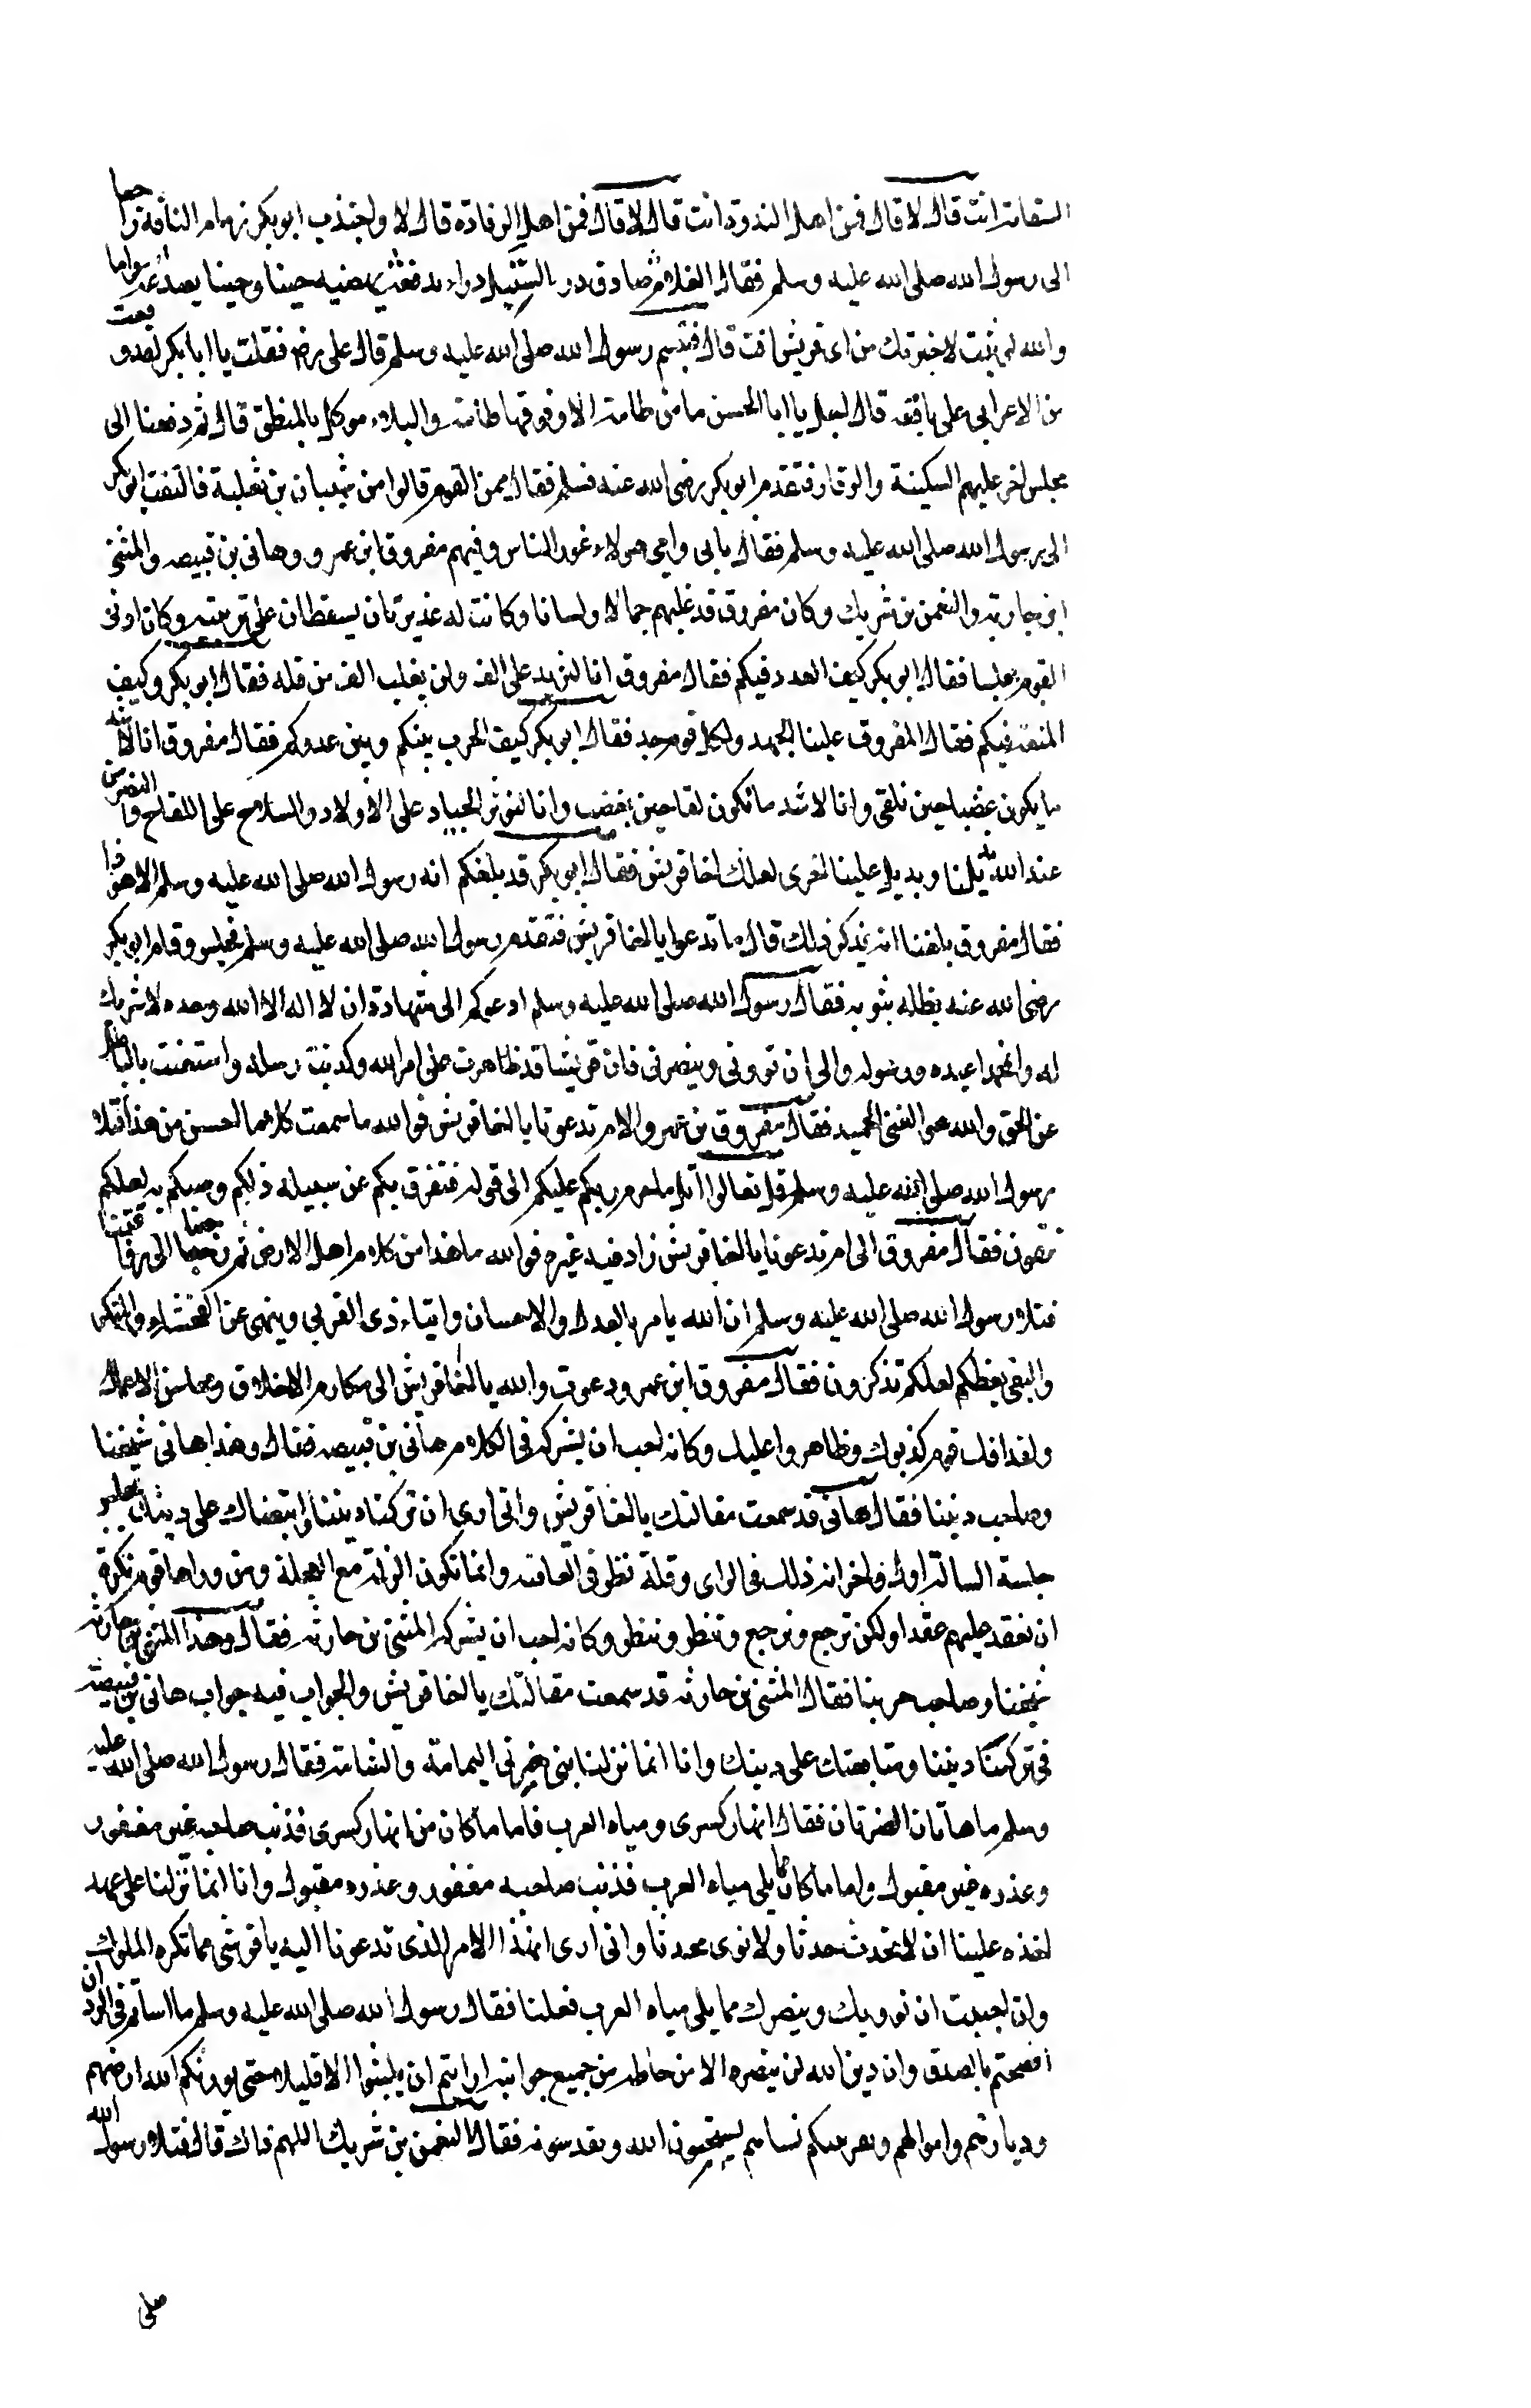 السقاية انت قال لا قال فمن اهل الندوة انت قال لا قال فمن اهل الرفادة قال لا واجتذب ابو بكر زمام الناقة راجعا
الى رسول الله صلى الله عليه وسلم فقال الغلام صادف در السيل درا يدفعه يهضبه حينا وحينا يصدعه اما
والله لو ثبت لاخبرتك من اى قريش انت قال فتبسم رسول الله صلى الله عليه وسلم قال على رضه فقلت يا ابا بكر لقد وقعت
من الاعرابى على باقعة قال لعل يا ابا الحسن ما من طامة الا وفوقها طامة والبلاء موكل بالمنطق قال ثم دفعنا الى
مجلس اخر عليهم السكينة والوقار فتقدم ابو بكر رضى الله عنه فسلم فقال ممن القوم قالوا من شيبان بن ثعلبة فالتفت ابو بكر
الى رسول الله صلى الله عليه وسلم فقال بابى وامى هولاء غرر الناس وفيهم مفروق ابن عمرو وهانى بن قبيصه والمثنى
ابن حارثه والنعمن بن شريك وكان مفروق قد غلبهم جمالا ولسانا وكانت له غديرتان يسقطان على تربيته وكان ادنى
القوم مجلسا فقال ابو بكر كيف العدد فيكم فقال مفروق انا لنزيد على الف ولن يغلب الف من قله فقال ابو بكر وكيف
المنعة فيكم فقال المفروق علينا الجهد ولكل قوم جد فقال ابو بكر كيف الحرب بينكم وبين عدوكم فقال مفروق انا لاشد
ما يكون غضبا حين نلقى وانا لاشد ما نكون لقا حين نغضب وانا لنوثر الجياد على الاولاد والسلاح على اللقاح والنصر من
عند الله يديلنا ويديل علينا اخرى لعلك اخا قريش فقال ابو بكر قد بلغكم انه رسول الله صلى الله عليه وسلم الا هو ذا
فقال مفروق بلغنا انه يذكر ذلك قال ما تدعوا يا اخا قريش فتقدم رسول الله صلى الله عليه وسلم فجلس وقام ابو بكر
رضى الله عنه يظله بثوبه فقال رسول الله صلى الله عليه وسلم ادعوكم الى شهادة ان لا اله الا الله وحده لا شريك
له وان محمدا عبده ورسوله والى ان توونى وينصرنى فان قريشا قد ظاهرت على امر الله وكذبت رسله واستغنت بالباطل
عن الحق والله هو الغنى الحميد فقال مفروق بن عمرو والام تدعونا يا اخا قريش فو الله ما سمعت كلاما احسن من هذا فتلا
رسول الله صلى الله عليه وسلم قل تعالوا اتل ما حرم ربكم عليكم الى قوله فتفرق بكم عن سبيله ذلكم وصيكم به لعلكم
تتقون فقال مفروق الى ام تدعونا يا اخا قريش زاد فيه غيره فو الله ما هذا من كلام اهل الارض ثم رجعنا الى رفا
فتلا رسول الله صلى الله عليه وسلم ان الله يامر بالعدل والاحسان وايتاء ذى القربى وينهى عن الفحشاء والمنكر
والبغى يعظكم لعلكم تذكرون فقال مفروق ابن عمرو دعوت والله يا اخا قريش الى مكارم الاخلاق ومحاسن الاعمال
ولقد افك قوم كذبوك وظاهروا عليك وكانه احب ان يشركه فى الكلام هانى بن قبيصه فقال وهذا هانى شيخنا
وصاحب ديننا فقال هانى قد سمعت مقالتك يا اخا قريش وانى ارى ان تركنا ديننا واتبعناك على دينك بمجلس
جلسته الينا له اول ولا اخر انه ذلك فى الراى وقلة نظر فى العاقبة وانما تكون الزلة مع العجلة ومن وراءنا قوم نكره
ان نعقد عليهم عقدا ولكن ترجع ونرجع وتنظر وننظر وكانه احب ان يشركه المثنى بن حارثه فقال وهذا المثنى بن حارثه
شيخنا وصاحب حربنا فقال المثنى بن حارثه قد سمعت مقالتك يا اخا قريش والجواب فيه جواب هانى بن قبيصه
فى تركنا ديننا ومتابعتك على دينك وانا انما نزلنا بين اليمامة والشامه فقال رسول الله صلى الله عليه
وسلم ما هاتان الضرتان فقال انهار كسرى ومياه العرب فاما ما كان من انهار كسرى فذنب صاحبه غير مغفور
وعذره غير مقبول واما ما كان مما يلى مياه العرب فذنب صاحبه مغفور وعذره مقبول وانا انما نزلنا على عهد
اخذه علينا ان لا نحدث حدثا ولا نوى محدثا وانى ارى ان هذا الامر الذى تدعونا اليه يا قرشى مما تكره الملوك
وان احببت ان نوويك وينصرك مما يلى مياه العرب فعلنا فقال رسول الله صلى الله عليه وسلم ما اساتم فى الرد اذ
افصحتم بالصدق وان دين الله لن ينصره الا من حاطه من جميع جوانبه ارايتم ان يلبثوا الا قليلا حتى يورثكم الله ارضهم
وديارهم واموالهم ويفرشكم نساهم يسبحون الله ويقدسونه فقال النعمن بن شريك اللهم فلك قال فتلا رسول الله
صلى